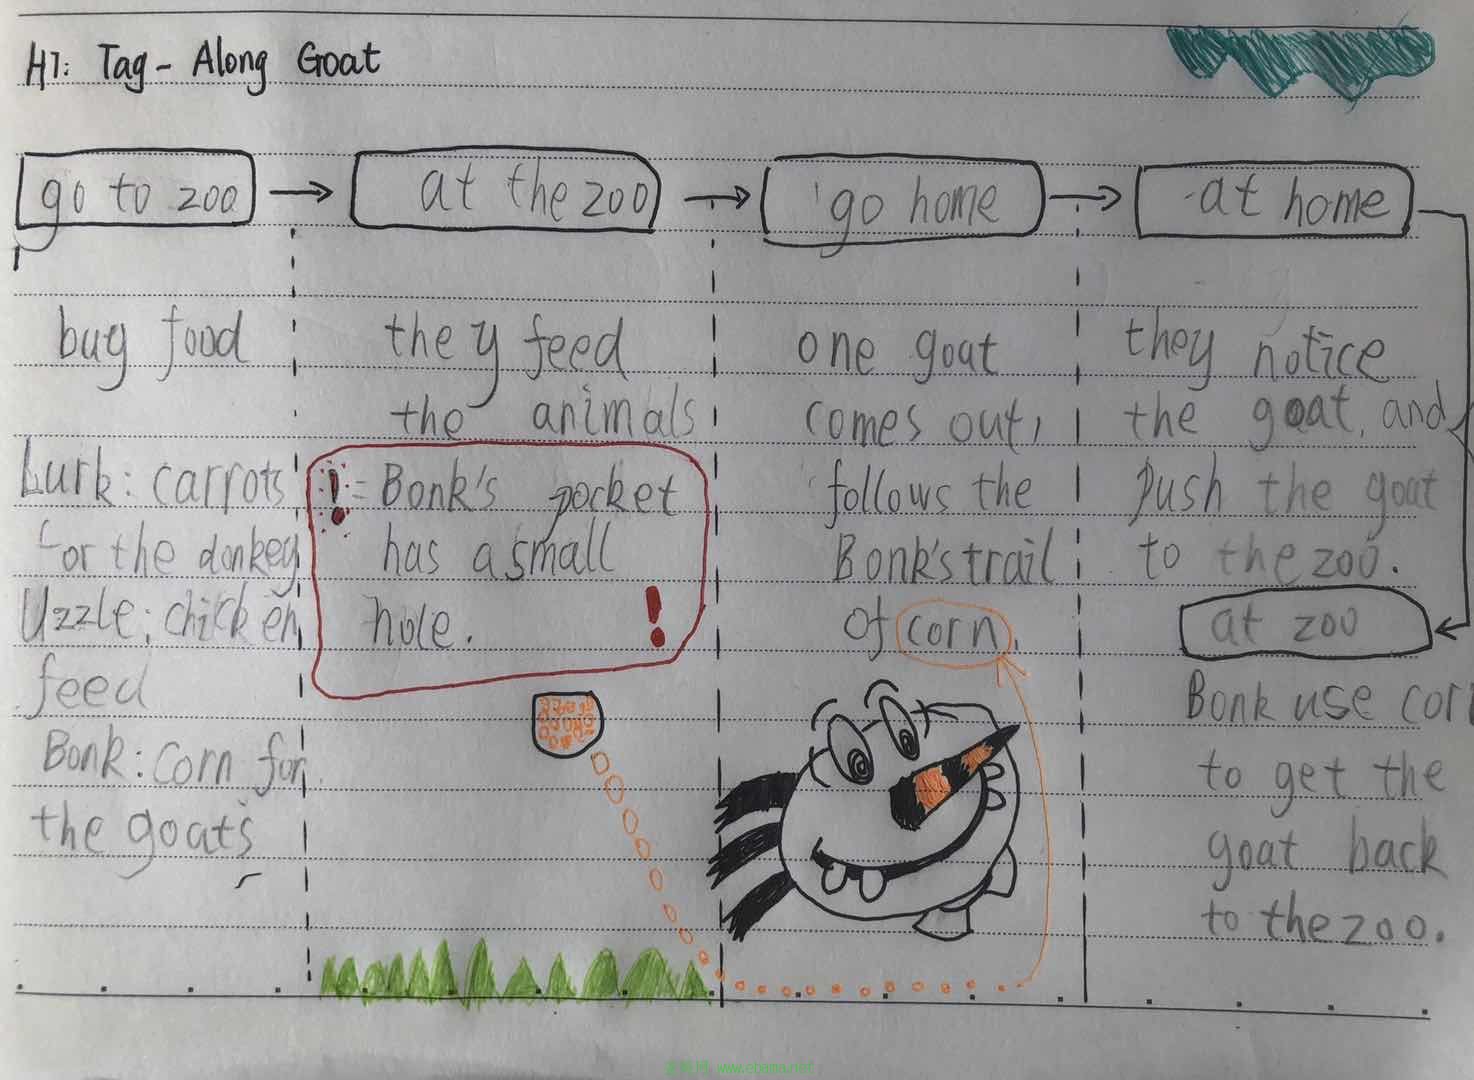 H7: Tag-Along Goat
go to zoo
at the zoo
go home
at home
buy food
Lurk: carrots
for the donkey
Uzzle: chicken
feed
Bonk: corn for
the goats
they feed
the animals
! Bonk's pocket
has a small
hole. !
one goat
comes out,
follows the
Bonk's trail
of corn.
they notice
the goat, and
push the goat
to the zoo.
at zoo
Bonk use cor
to get the
goat back
to the zoo.
www.ebama.net